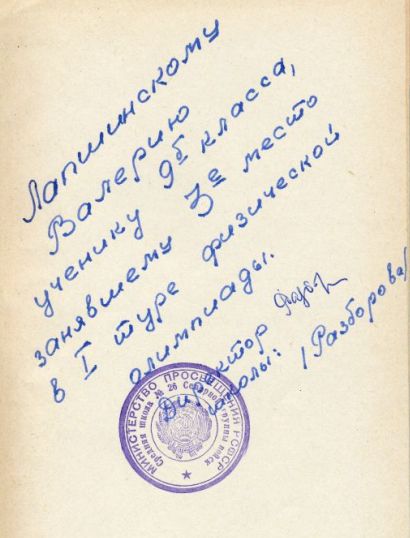 Лапшинскому
Валерию
ученику 9б класса,
занявшему 3е место
в I туре физической
олимпиады.
Директор
школы: /Разборова/
МИНИСТЕРСТВО ПРОСВЕЩЕНИЯ РСФСР
Средняя школа № 26 Северной группы войск